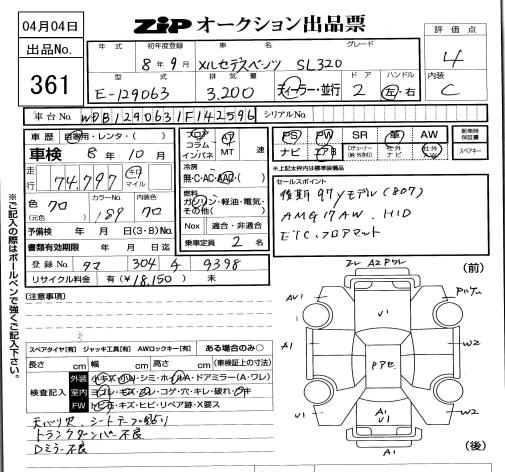 04月04日
ZiP オークション出品票
出品No.
361
年式
初年度登録
8年9月
車名
メルセデスベンツ SL320
グレード
型式
E-129063
排気量
3,200
ディーラー・並行
ドア
2
ハンドル
左・右
評価点
4
内装
C
車台No.
WDB1290631F142596
シリアルNo.
車歴
自家用・レンタ・( )
車検 8年 10月
走行
74,797
キロ
マイル
色
クロ
(元色)
カラーNo.
189
内装色
クロ
予備検 年 月 日(3・8)No.
書類有効期限 年 月 日迄
登録No. タマ 304 チ 9398
リサイクル料金 有(¥18,150) 未
フロア
コラム
インパネ
AT
MT
速
冷房
無・C・AC・AAC・( )
燃料
ガソリン・軽油・電気・
その他( )
Nox
適合・非適合
乗車定員 2 名
PS
PW
SR
革
AW
ナビ
エアB
社外
スペアキー
新車時保証書
*上記太枠内は標準装備品
セールスポイント
後期97yモデル(807)
AMG17AW、HID
ETC、フロアマット
※ご記入の際はボールペンで強くご記入下さい。
[注意事項]
スペアタイヤ[有] ジャッキ工具[有] AWロックキー[有] ある場合のみ○
長さ cm 幅 cm 高さ cm (車検証上の寸法)
検査記入
外装
小キズ・小凹・シミ・ホイルA・ドアミラー(A・ワレ)
室内
ヨゴレ・キズ・スレ・コゲ・穴・キレ・破れ・ウキ
FW
トビ石・キズ・ヒビ・リペア跡・X要ス
天バリ穴、シートテープ貼り
トランクダンパー不良
Dミラー不良
(前)
A2
AV1
V1
W2
A1
Pアセ
U1
W2
A1
V1
(後)